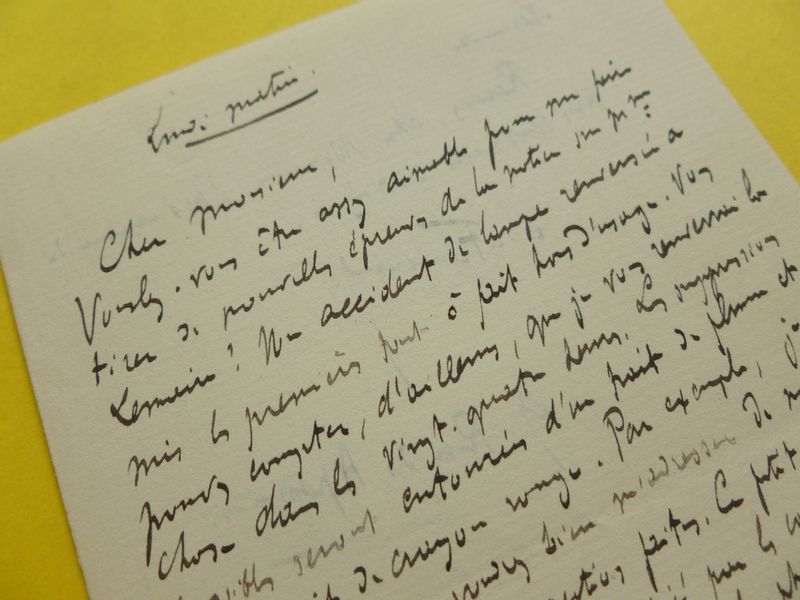 Lundi matin.
Cher monsieur,
Voulez-vous être assez aimable pour me faire
tirer de nouvelles épreuves de la notice sur Mme
Lemaire? Un accident de lampe renversée a
mis les premières tout à fait hors d'usage. Vous
pouvez compter, d'ailleurs, que je vous renverrai la
chose dans les vingt-quatre heures. Les suppressions
seront entourées d'un trait de plume et
de crayon rouge. Par exemple, je
bien m'adresser de
faites. Ce petit
pour les